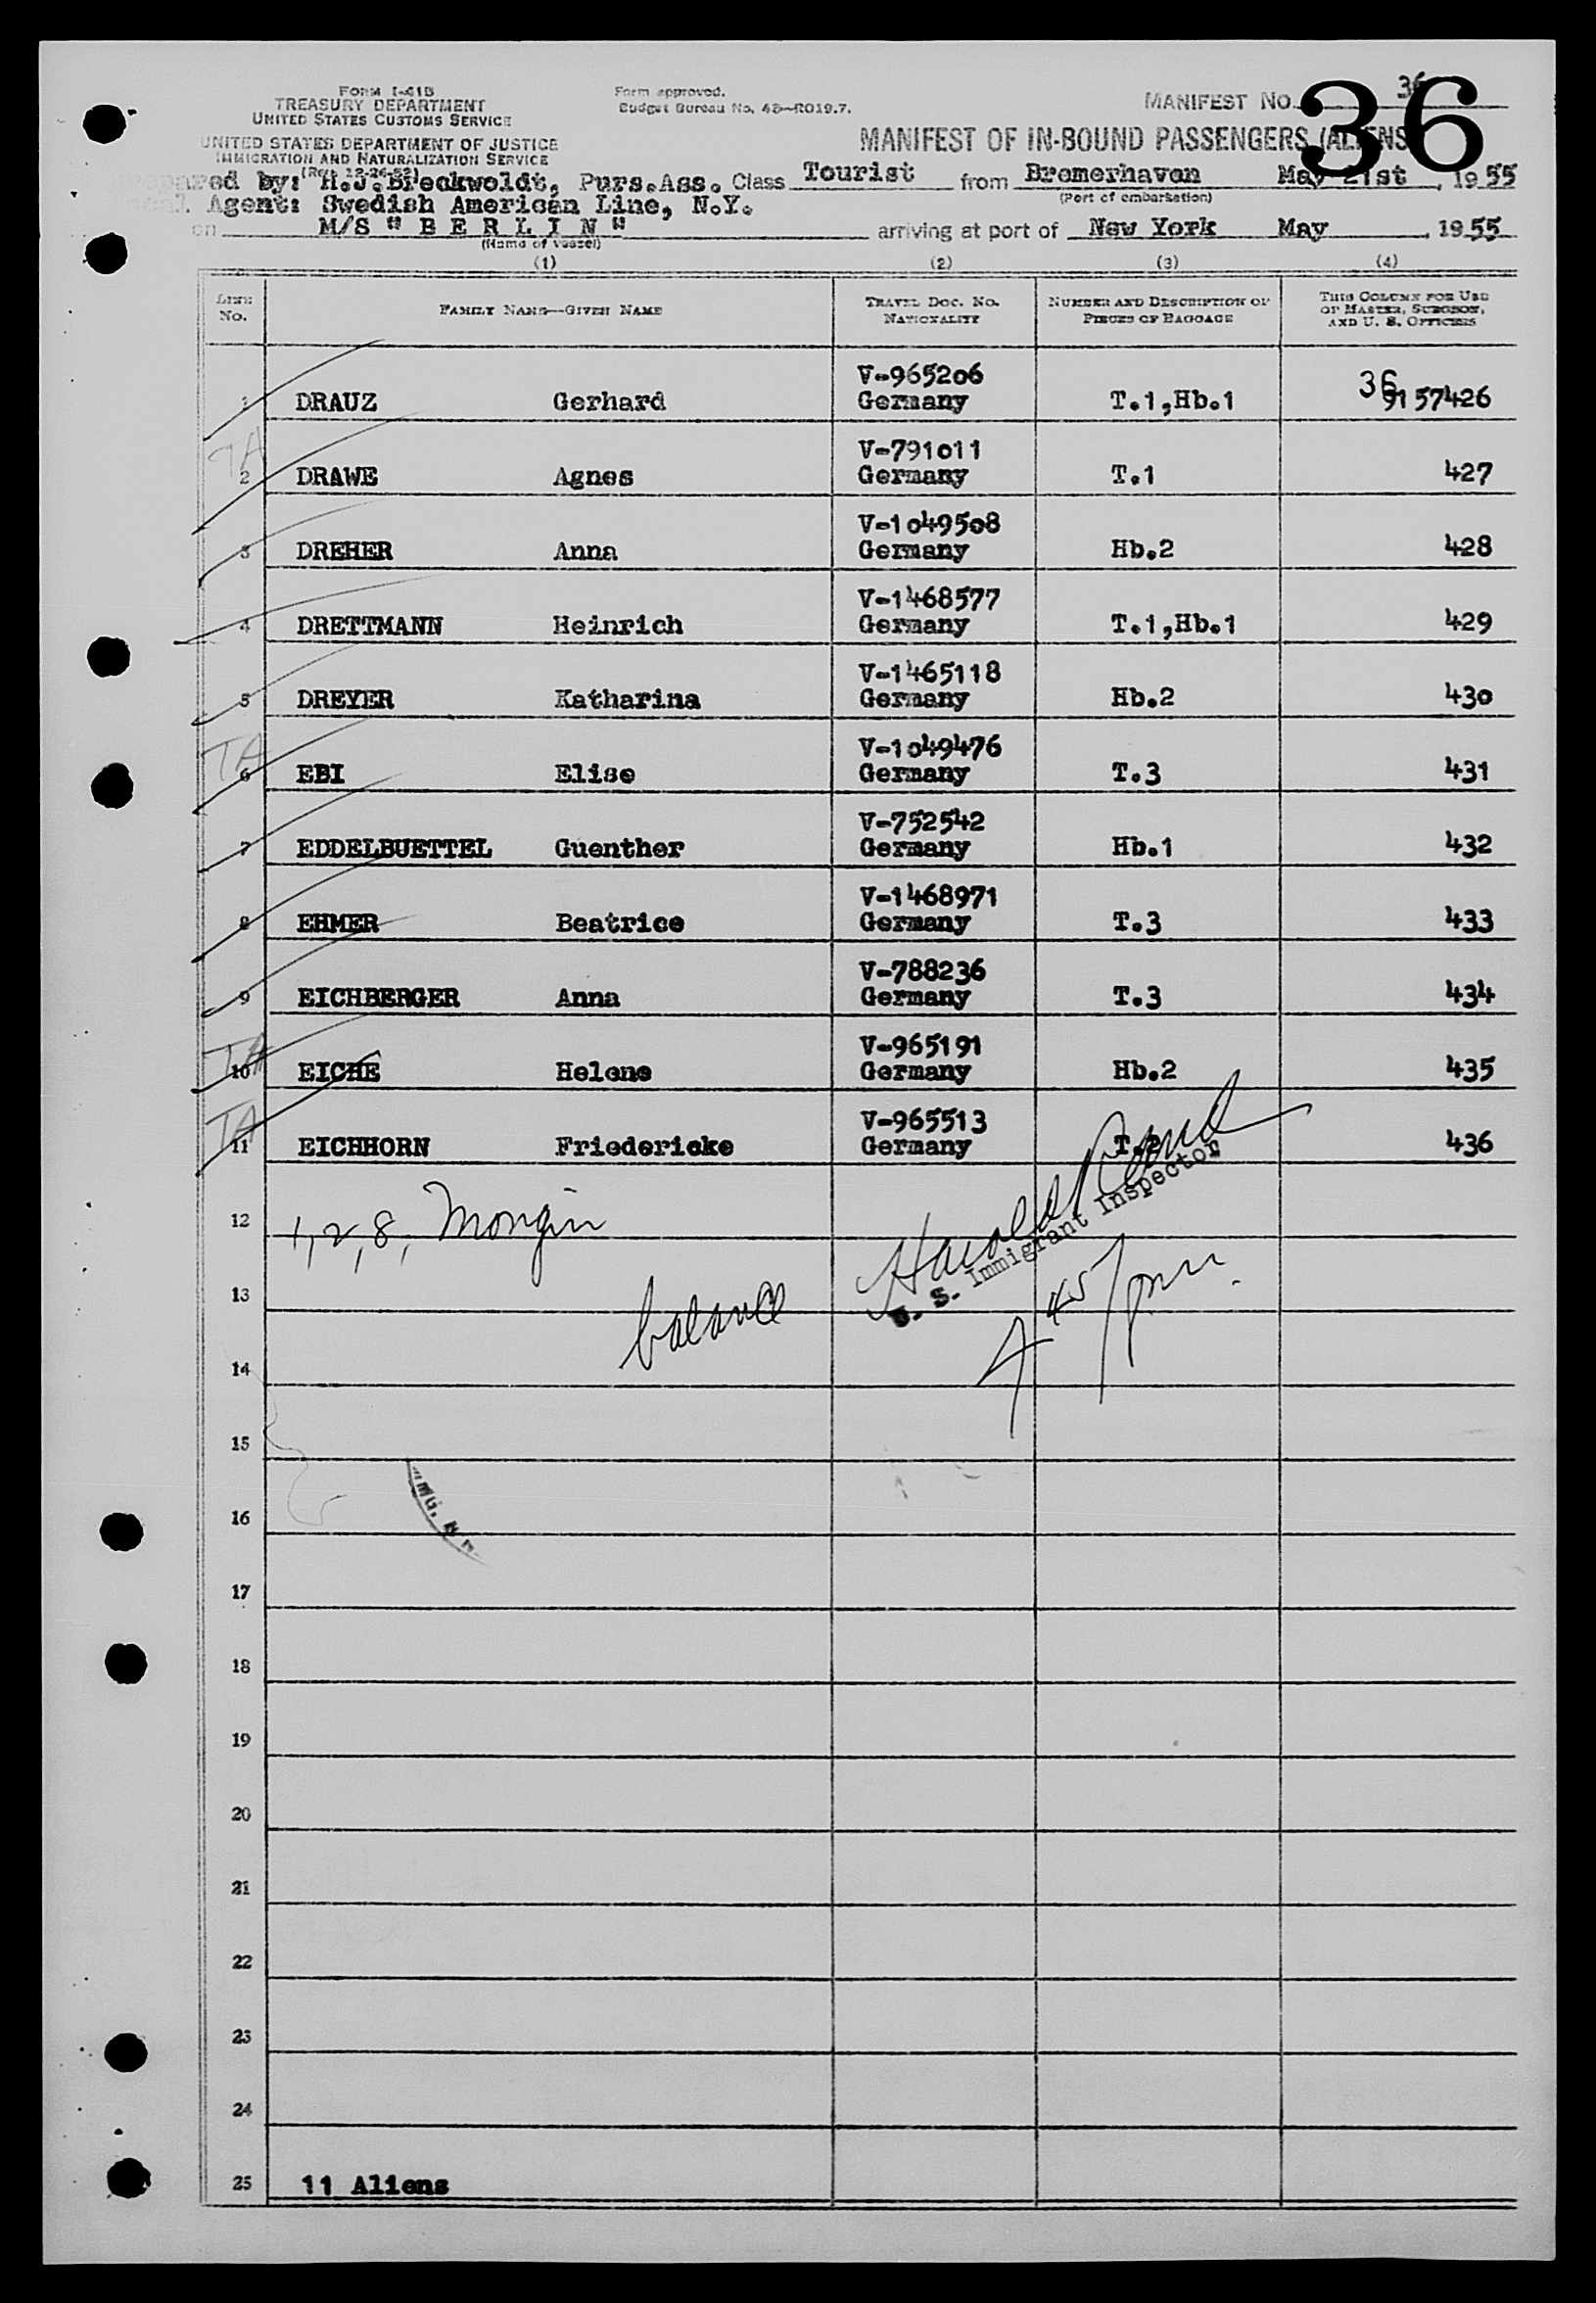 FORM I-418
TREASURY DEPARTMENT
UNITED STATES CUSTOMS SERVICE
UNITED STATES DEPARTMENT OF JUSTICE
IMMIGRATION AND NATURALIZATION SERVICE
Form approved.
Budget Bureau No. 43—R019.7.
MANIFEST NO. 36
36
MANIFEST OF IN-BOUND PASSENGERS (ALIENS
by: H.J.Breckwoldt, Purs.Ass. Class Tourist from Bremerhaven May 21st, 1955
(Port of embarkation)
Agent: Swedish American Line, N.Y.
on M/S " B E R L I N " arriving at port of New York May , 1955
(Name of vessel)
(1) (2) (3) (4)
LINE No. FAMILY NAME—GIVEN NAME TRAVEL DOC. NO. NATIONALITY NUMBER AND DESCRIPTION OF PIECES OF BAGGAGE THIS COLUMN FOR USE OF MASTER, SURGEON, AND U. S. OFFICERS
V-965206 36
1 DRAUZ Gerhard Germany T.1,Hb.1 9157426
TA V-791011
2 DRAWE Agnes Germany T.1 427
V-1049508
3 DREHER Anna Germany Hb.2 428
V-1468577
4 DRETTMANN Heinrich Germany T.1,Hb.1 429
V-1465118
5 DREYER Katharina Germany Hb.2 430
TA V-1049476
6 EBI Elise Germany T.3 431
V-752542
7 EDDELBUETTEL Guenther Germany Hb.1 432
V-1468971
8 EHMER Beatrice Germany T.3 433
V-788236
9 EICHBERGER Anna Germany T.3 434
TA V-965191
10 EICHE Helene Germany Hb.2 435
TA V-965513
11 EICHHORN Friedericke Germany 436
12 1, 2, 8, Mongin
Harold
U. S. Immigrant Inspector
13 balance
4 45 pm.
14
15
16
17
18
19
20
21
22
23
24
25 11 Aliens